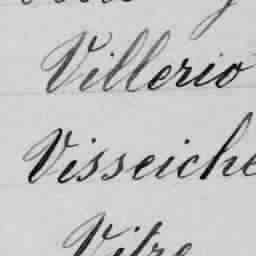 Villerio
Visseiche
Vitre